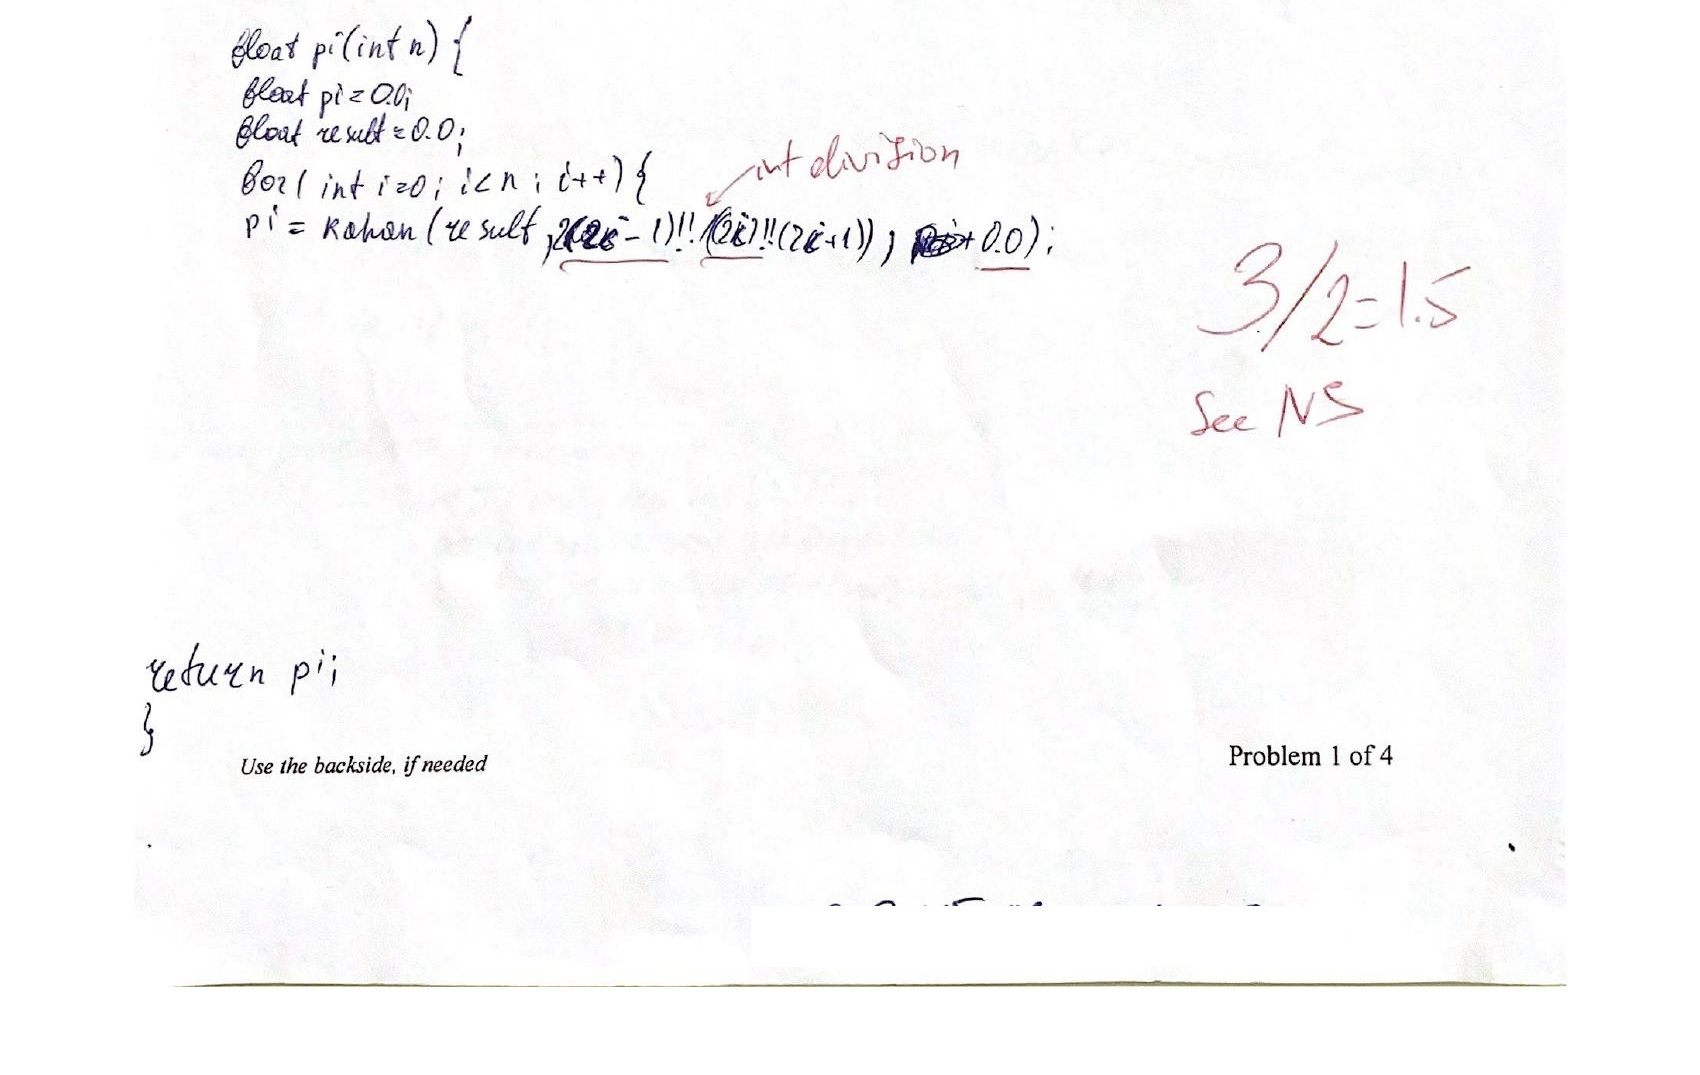 float pi(int n) {
float pi = 0.0;
float result = 0.0;
int division
for( int i=0; i<n; i++) {
pi = Kahan(result, 2((2i-1)!!/(2i)!!(2i+1)), 0.0);
3/2=1.5
See NS
return pi;
}
Use the backside, if needed
Problem 1 of 4